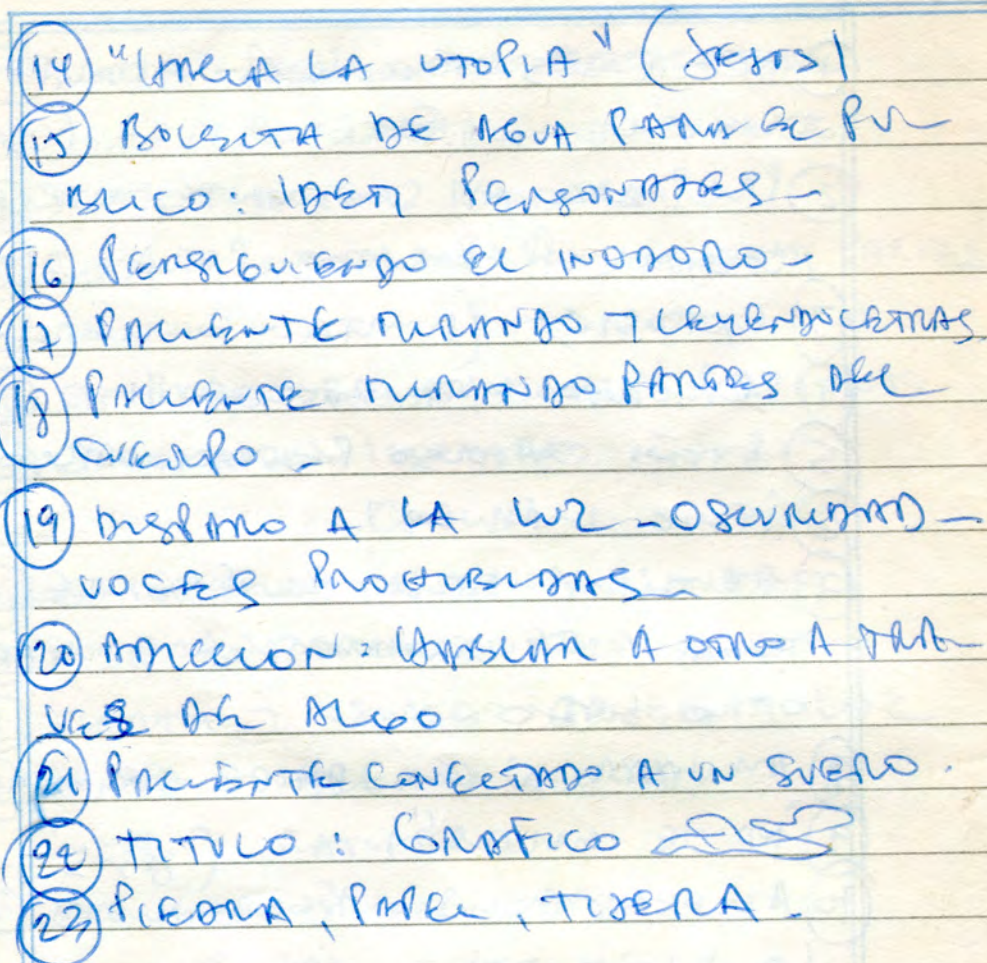 14 "HACIA LA UTOPIA" (JESUS)
15 BOLSITA DE AGUA PARA EL PU
BLICO: IDEM PERSONAJES -
16 PERSIGUIENDO EL INODORO -
17 PACIENTE MIRANDO Y LEYENDO LETRAS
18 PACIENTE MIRANDO PARTES DEL
CUERPO -
19 DISPARO A LA LUZ - OSCURIDAD -
VOCES PROHIBIDAS -
20 ADICCION: HABLAR A OTRO A TRA-
VES DE ALGO
21 PACIENTE CONECTADO A UN SUERO.
22 TITULO: GRAFICO
23 PIEDRA, PAPEL, TIJERA -